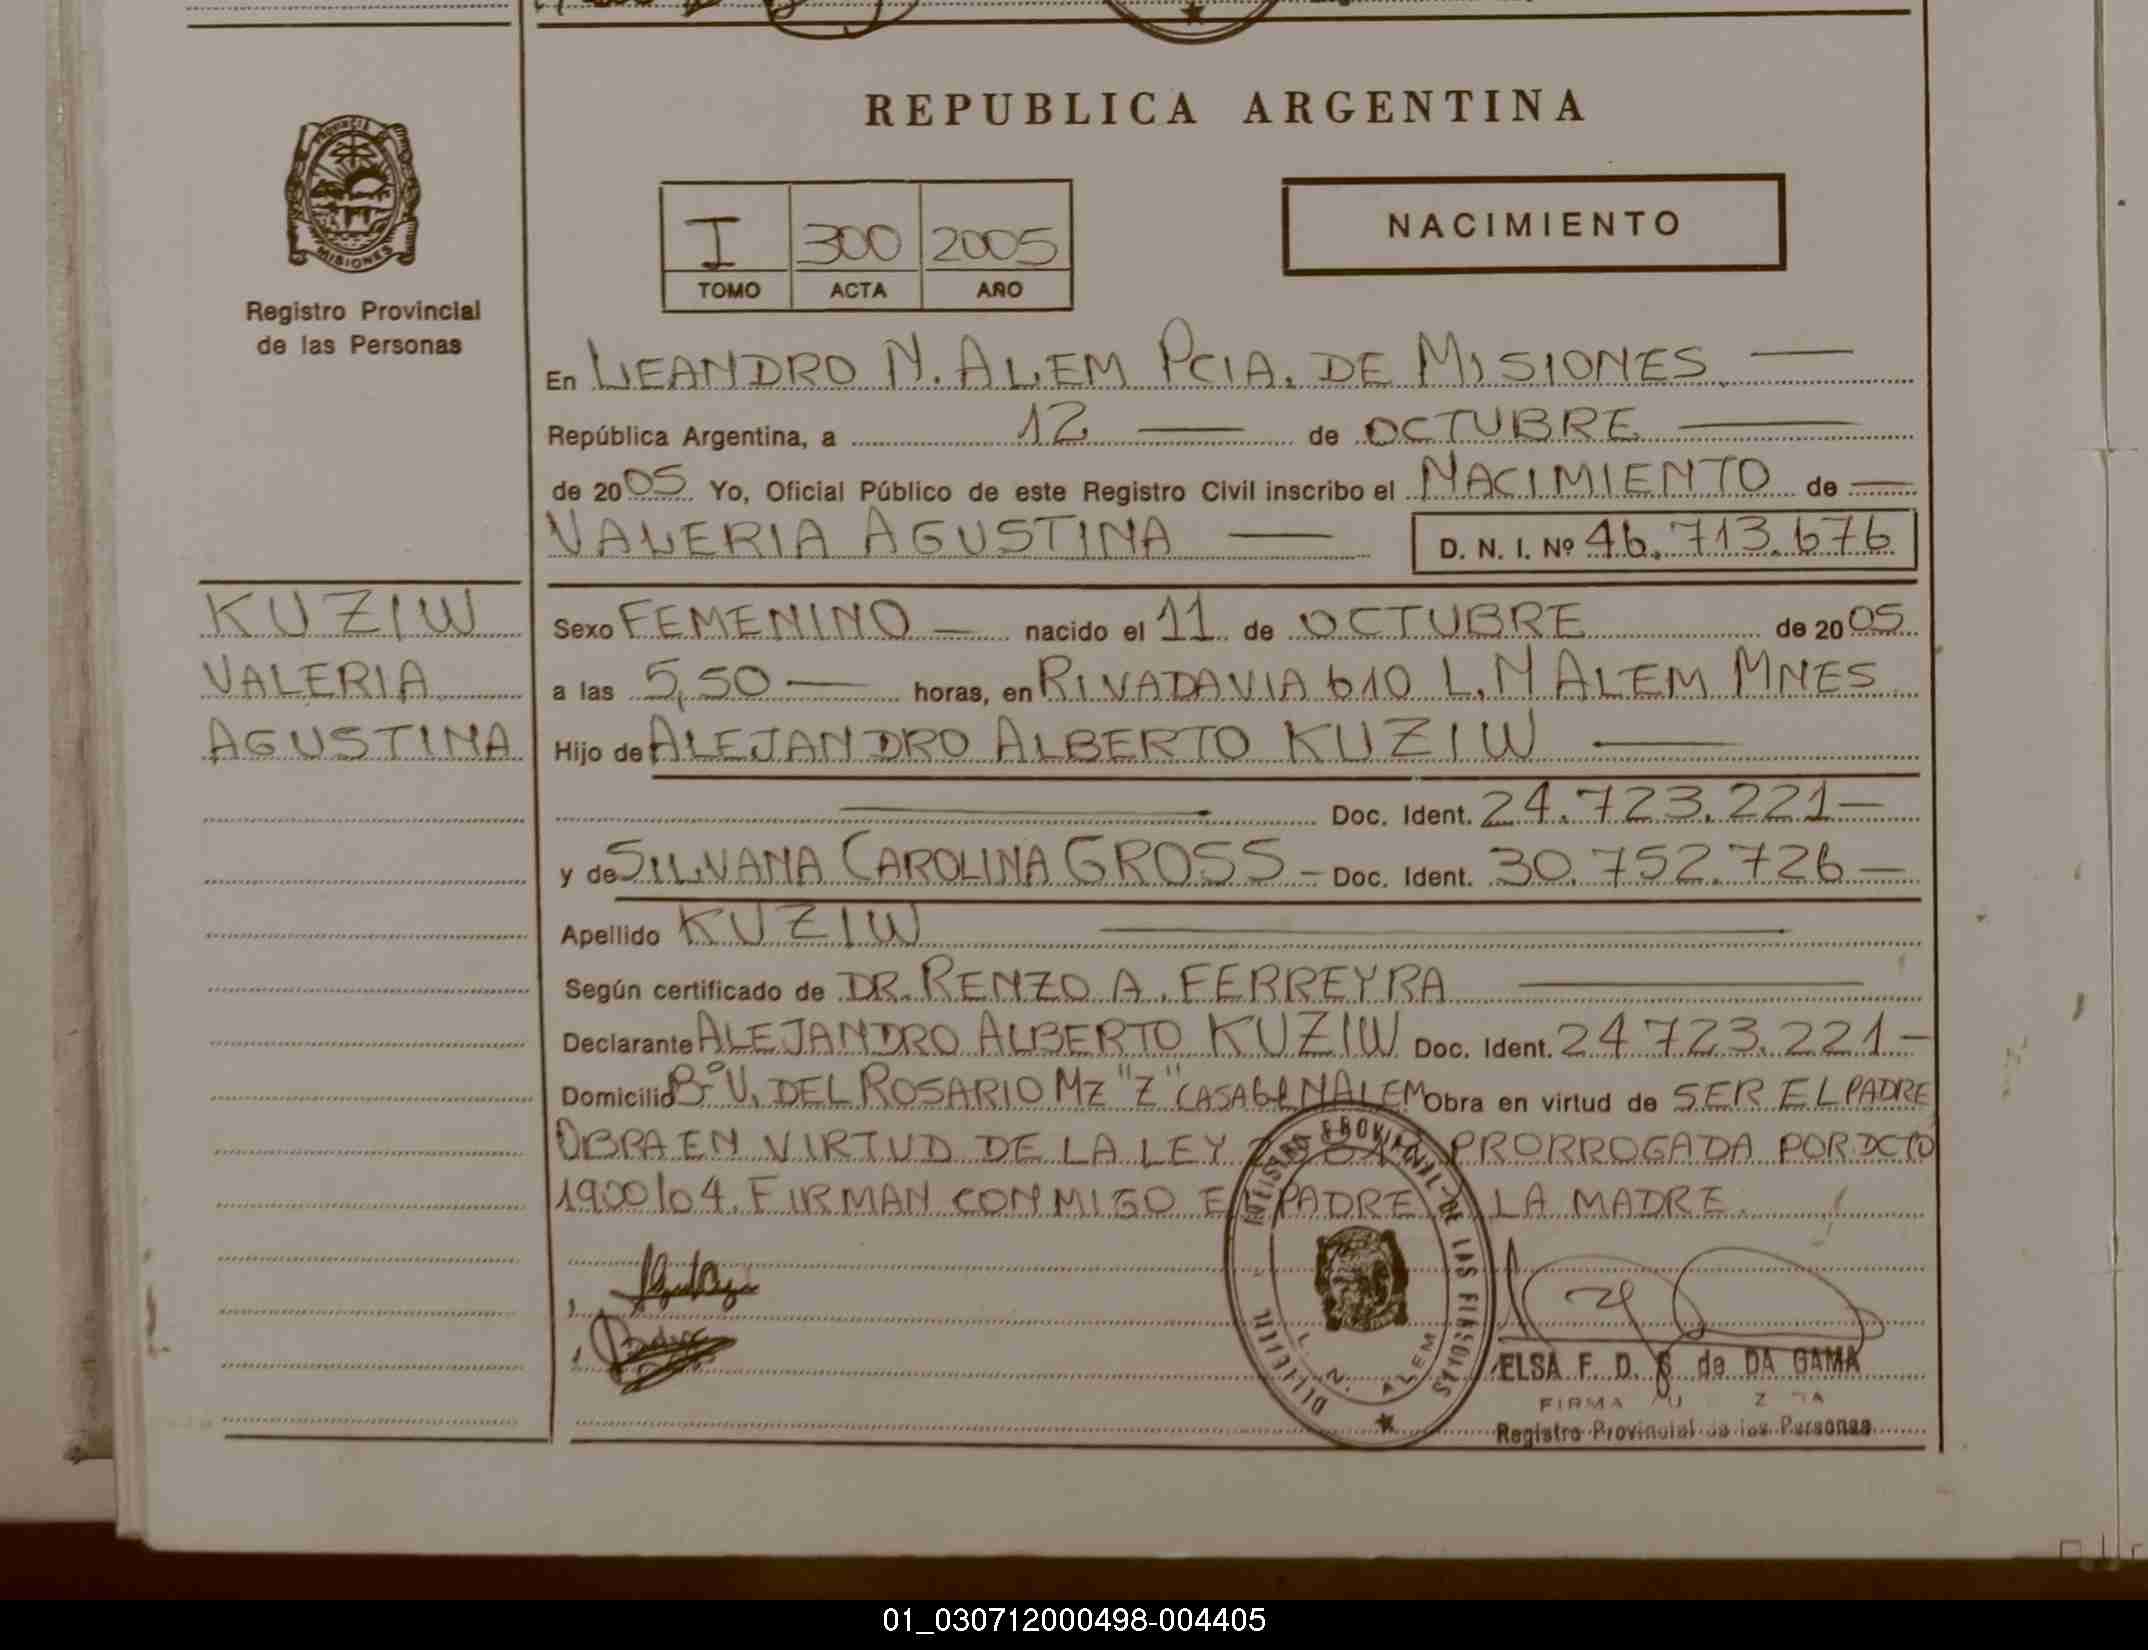 REPUBLICA ARGENTINA
PROVINCIA DE MISIONES
Registro Provincial
de las Personas
I 300 2005
TOMO ACTA AÑO
NACIMIENTO
En LEANDRO N. ALEM PCIA. DE MISIONES
República Argentina, a 12 de OCTUBRE
de 2005 Yo, Oficial Público de este Registro Civil inscribo el NACIMIENTO de
VALERIA AGUSTINA D. N. I. Nº 46.713.676
KUZIW
VALERIA
AGUSTINA
Sexo FEMENINO nacido el 11 de OCTUBRE de 2005
a las 5,50 horas, en RIVADAVIA 610 L. N ALEM MNES
Hijo de ALEJANDRO ALBERTO KUZIW
Doc. Ident. 24.723.221
y de SILVANA CAROLINA GROSS Doc. Ident. 30.752.726
Apellido KUZIW
Según certificado de DR. RENZO A. FERREYRA
Declarante ALEJANDRO ALBERTO KUZIW Doc. Ident. 24.723.221
Domicilio Bº V. DEL ROSARIO MZ "Z" CASA ALEM Obra en virtud de SER EL PADRE
OBRA EN VIRTUD DE LA LEY PRORROGADA POR DCTO
1900/04. FIRMAN CONMIGO EL PADRE LA MADRE.
REGISTRO PROVINCIAL DE LAS PERSONAS
L. N. ALEM
ELSA F. D. de DA GAMA
FIRMA
Registro Provincial de las Personas
01_030712000498-004405